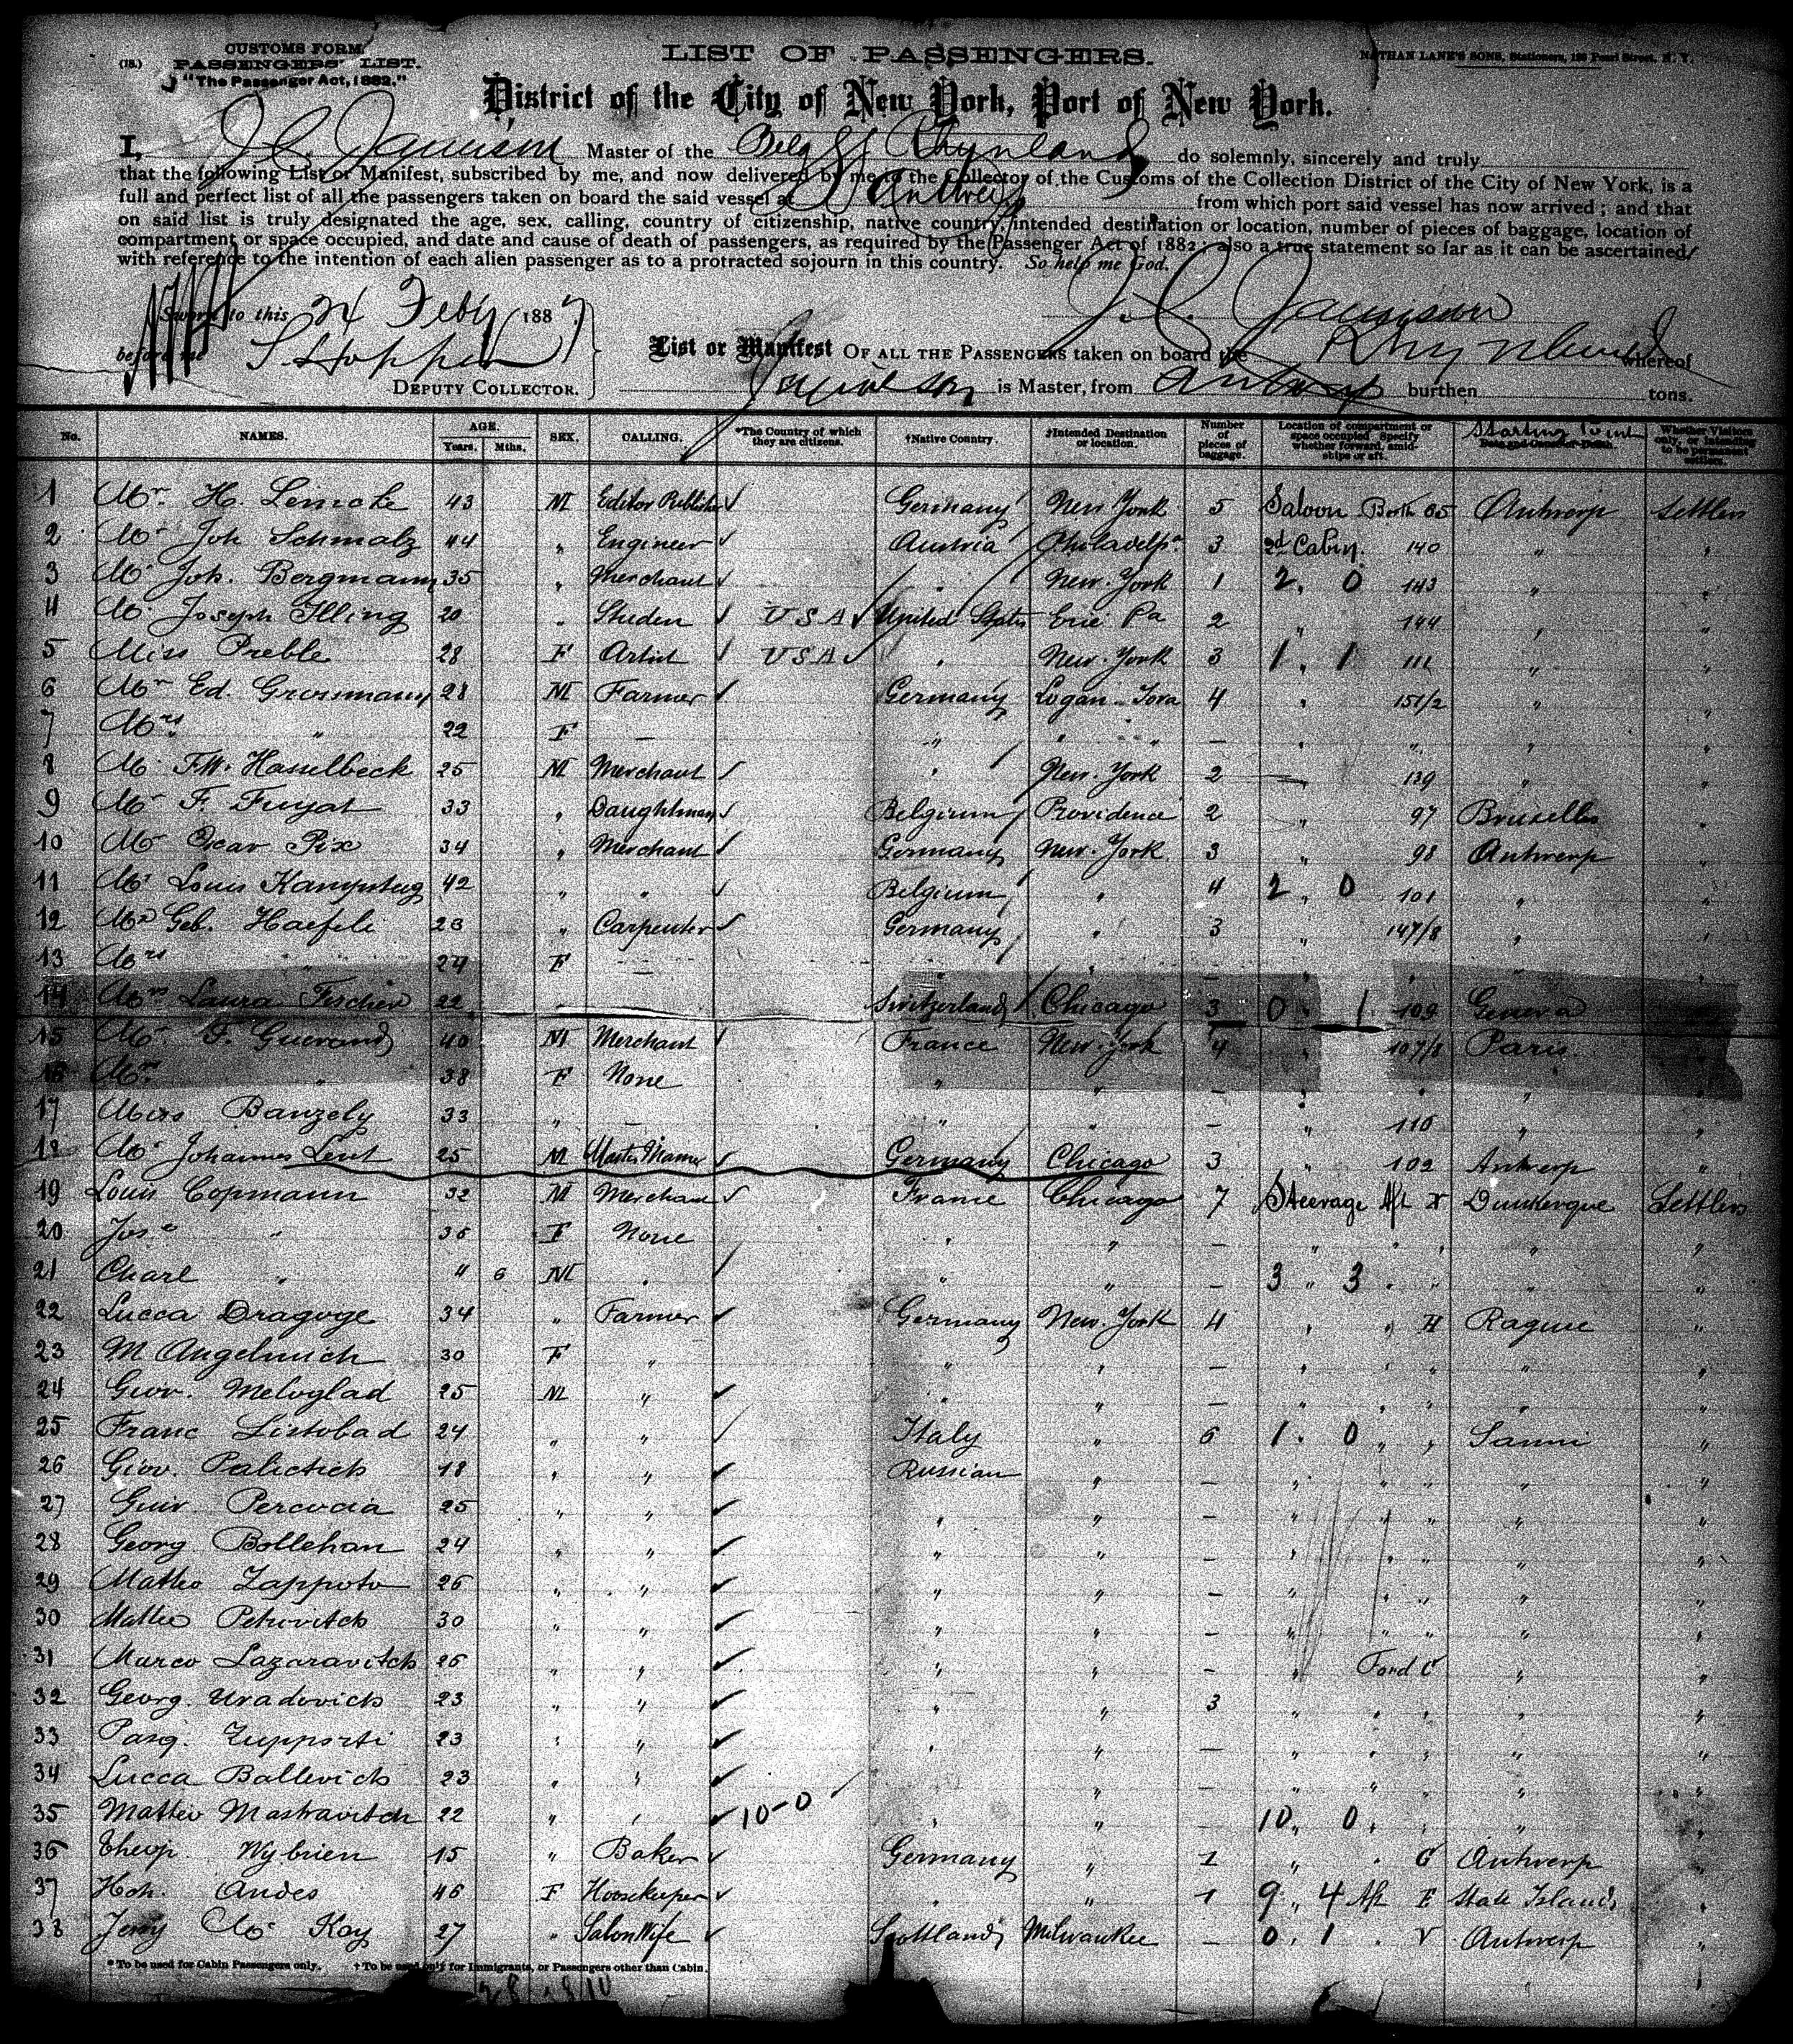 (18.)
CUSTOMS FORM.
PASSENGERS' LIST.
"The Passenger Act, 1882."
LIST OF PASSENGERS.
NATHAN LANE'S SONS, Stationers, Pearl Street, N. Y.
District of the City of New York, Port of New York.
I, J. C. Jamison Master of the Belg SS Rhynland do solemnly, sincerely and truly
that the following List or Manifest, subscribed by me, and now delivered by me to the Collector of the Customs of the Collection District of the City of New York, is a
full and perfect list of all the passengers taken on board the said vessel at Antwerp from which port said vessel has now arrived; and that
on said list is truly designated the age, sex, calling, country of citizenship, native country, intended destination or location, number of pieces of baggage, location of
compartment or space occupied, and date and cause of death of passengers, as required by the Passenger Act of 1882; also a true statement so far as it can be ascertained
with reference to the intention of each alien passenger as to a protracted sojourn in this country. So help me God.
Sworn to this 24 Feby 1887 J. C. Jamison
before me
DEPUTY COLLECTOR.
List or Manifest OF ALL THE PASSENGERS taken on board the Rhynland whereof
Jamison is Master, from Antwerp burthen tons.
No. NAMES. AGE. Years. Mths. SEX. CALLING. *The Country of which they are citizens. †Native Country. †Intended Destination or location. Number of pieces of baggage. Location of compartment or space occupied. Specify whether forward, amidships or aft. Starting Point Date and Cause of Death. Whether Visitors only, or intending to be permanent settlers.
1 Mr. H. Lemcke 43 M Editor Publisher Germany New York 5 Saloon Berth 65 Antwerp Settlers
2 Mr Joh Schmalz 44 " Engineer Austria Philadelp. 3 2d Cabin. 140 " "
3 Mr Joh. Bergmann 35 " Merchant " New. York 1 2, 0 143 " "
4 Mr Joseph Illing 20 " Studen USA United States Erie Pa 2 " 144 " "
5 Miss Preble 28 F Artist USA " New. York 3 1, 1 111 " "
6 Mr Ed. Grossmann 28 M Farmer Germany Logan Iova 4 " 151/2 " "
7 Mrs " 22 F — " " — " " " "
8 Mr F.W. Hasselbeck 25 M Merchant " New. York 2 139 " "
9 Mr F. Fuyat 33 " Daughtman Belgium Providence 2 " 97 Bruxelles "
10 Mr Oscar Pix 34 " Merchant Germany New. York 3 " 98 Antwerp "
11 Mr Louis 42 " " Belgium " 4 2, 0 101 " "
12 Mr Geb. Haefeli 28 " Carpenter Germany " 3 " 147/8 " "
13 Mrs " 24 F — " " — " " " "
14 Mrs Laura Fischer 22 " Switzerland Chicago 3 0 1 109 Geneva "
15 Mr F. Guerand 40 M Merchant France New. York 4 " 107/8 Paris "
16 Mrs " 38 F None " " — " " " "
17 Miss Banzely 33 " — " " — " 110 " "
18 Mr Johannes Lent 25 M Germany Chicago 3 " 102 Antwerp "
19 Louis Copmann 32 M Merchant France Chicago 7 Steerage Aft Dunkerque Settlers
20 Jose " 36 F None " " — " " " " "
21 Charl " 4 6 M " " " — 3 " 3 " " "
22 Lucca Dragoge 34 " Farmer Germany New. York 4 " " H Raguse "
23 M Angelinich 30 F " " " — " " " " "
24 Giov. Meloglad 25 M " " " — " " " " "
25 Franc Listobad 24 " " Italy " 6 1. 0 " " "
26 Giov. Palictich 18 " " Russian " — " " " " "
27 Giuv. Percocia 25 " " " " — " " " " "
28 Georg Bollehan 24 " " " " — " " " " "
29 Matteo Zappoto 26 " " " " — " " " " "
30 Mattio Petrovitch 30 " " " " — " " " " "
31 Marco Lazaravitch 26 " " " " — " Ford C " "
32 Georg. Uradovich 23 " " " " 3 " " " " "
33 Pasq. Zupporti 23 " " " " — " " " " "
34 Lucca Ballevich 23 " " " " — " " " " "
35 Matteo Mastravitch 22 " " 10-0 " " 10, 0 " " "
36 Theop. Wybrien 15 " Baker Germany " 1 " " G Antwerp "
37 Andes 46 F Hoosekeeper " " 1 9, 4 Aft E "
38 Jenny Mc Kay 27 " Scottland Milwaukee — 0. 1 . V Antwerp "
* To be used for Cabin Passengers only. † To be used only for Immigrants, or Passengers other than Cabin.